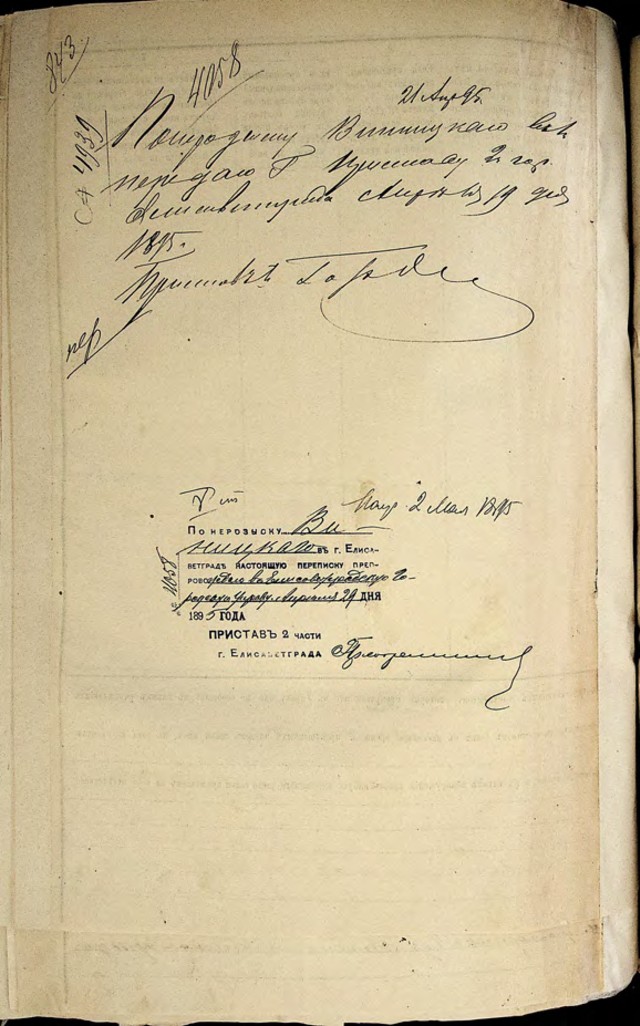 843.
4058
21 Апр 95
№ 4939
Винницкаго
передаю Г Приставу 2 гор.
Елисаветграда Апреля 19 дня
1895.
Приставъ
Пол. 2 Мая 1895
По нерозыску Ви-
ницкаго въ г. Елиса-
ветградѣ настоящую переписку преп-
рово в Елисаветградскую Го-
родскую Управу. Апреля 29 дня
№ 4058
1895 года
Приставъ 2 части
г. Елисаветграда